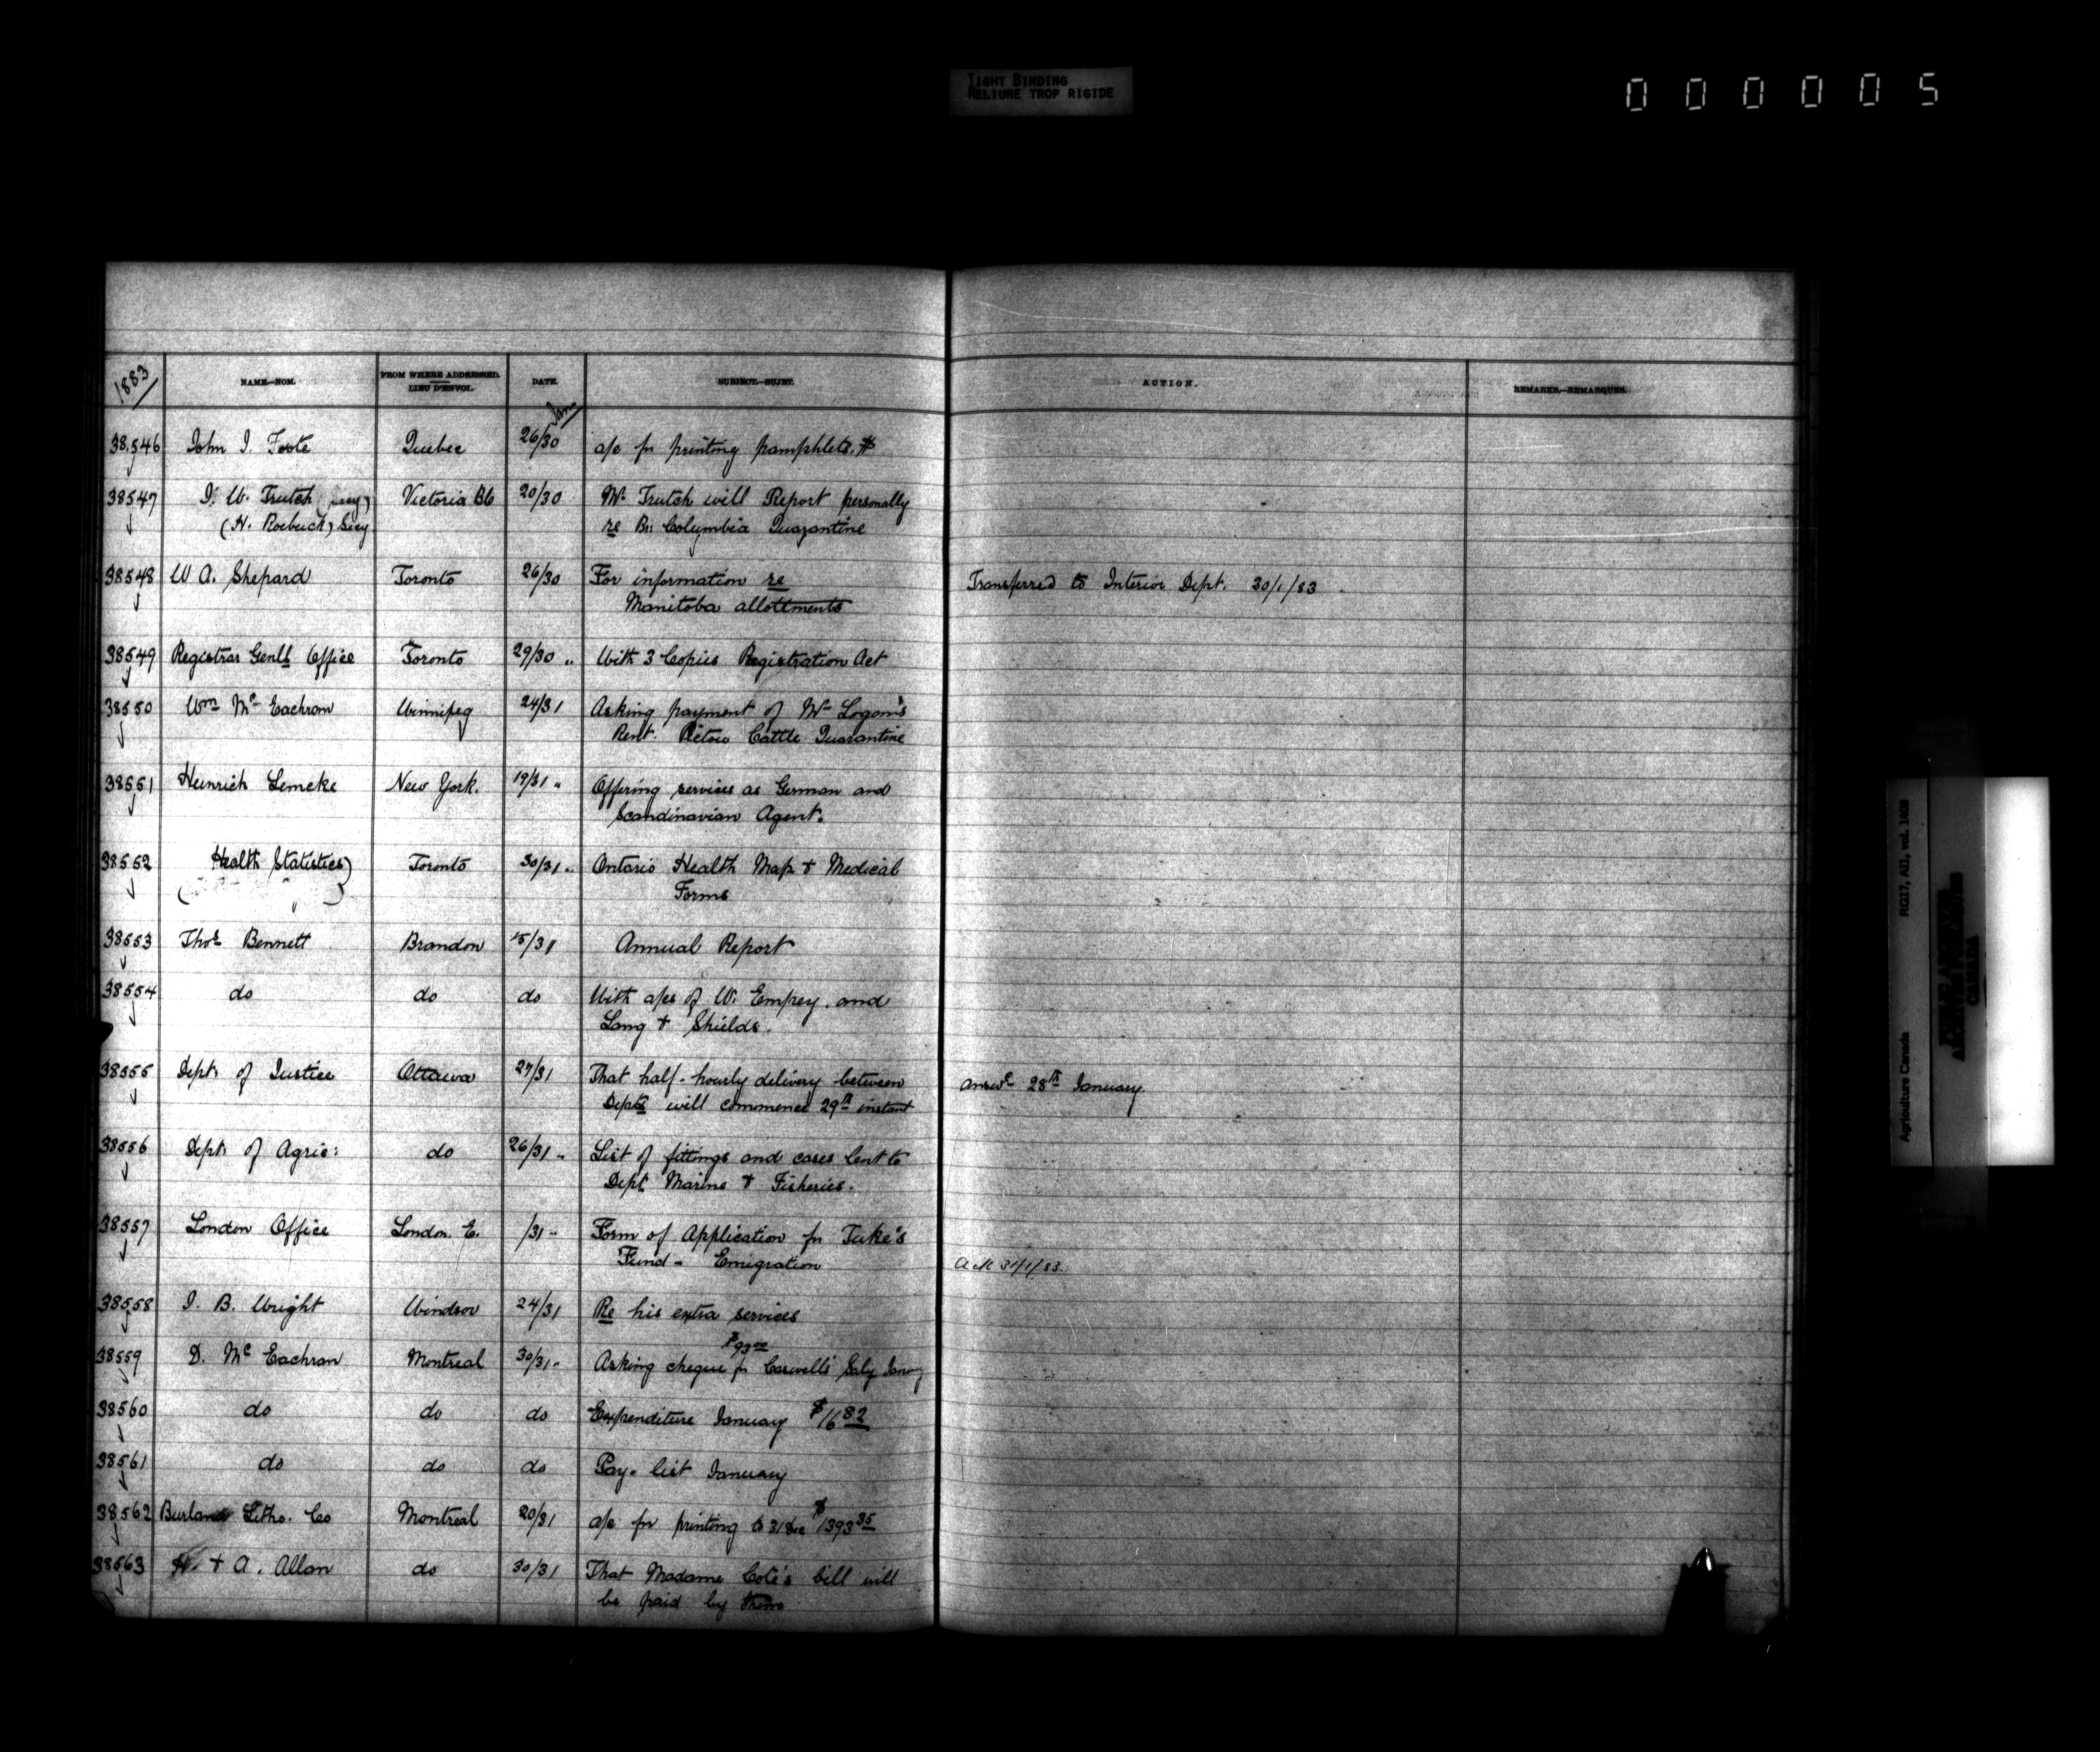 TIGHT BINDING
RELIURE TROP RIGIDE
000005
1883
NAME.—NOM.
FROM WHERE ADDRESSED.
LIEU D'ENVOI.
DATE.
SUBJECT.—SUJET.
ACTION.
REMARKS.—REMARQUES.
Jan
38.546 John J. Foote Quebec 26/30 a/c for printing pamphlets. $
38547 J. W. Trutch Victoria BC 20/30 Mr Trutch will Report personally
(H. Roebuck) Secy re Br: Columbia Quarantine
38548 W A. Shepard Toronto 26/30 For information re Transferred to Interior Dept. 30/1/83
Manitoba allottments
38549 Registrar Genls Office Toronto 29/30 " With 3 Copies Registration Act
38550 Wm Mc Eachran Winnipeg 24/31 Asking payment of Mr Logan's
Rent. Pictou Cattle Quarantine
38551 Heinrich Lemcke New York. 19/31 " Offering services as German and
Scandinavian Agent.
38552 Health Statistics) Toronto 30/31 " Ontario Health Map & Medical
Forms
38553 Thos Bennett Brandon 15/31 Annual Report
38554 do do do With a/cs of W. Empey. and
Lang & Shields.
38555 Dept. of Justice Ottawa 27/31 That half-hourly delivery between answd 28th January.
Depts will commence 29th instant
38556 Dept. of Agric: do 26/31 " List of fittings and cases lent to
Dept Marine & Fisheries.
38557 London Office London. E. /31 " Form of Application for Tuke's
Fund - Emigration Ack 31/1/83.
38558 J. B. Wright Windsor 24/31 Re his extra services
$93.00
38559 D. Mc Eachran Montreal 30/31 " Asking cheque for Caswell's Saly Jany
38560 do do do Expenditure January $16 82
38561 do do do Pay-list January
38562 Burland Litho. Co Montreal 20/31 a/c for printing to 31 Dec $1393 35
38563 H. & A. Allan do 30/31 That Madame Coté's bill will
be paid by them
Agriculture Canada RG17, AII, vol. 1408
PUBLIC ARCHIVES
ARCHIVES PUBLIQUES
CANADA